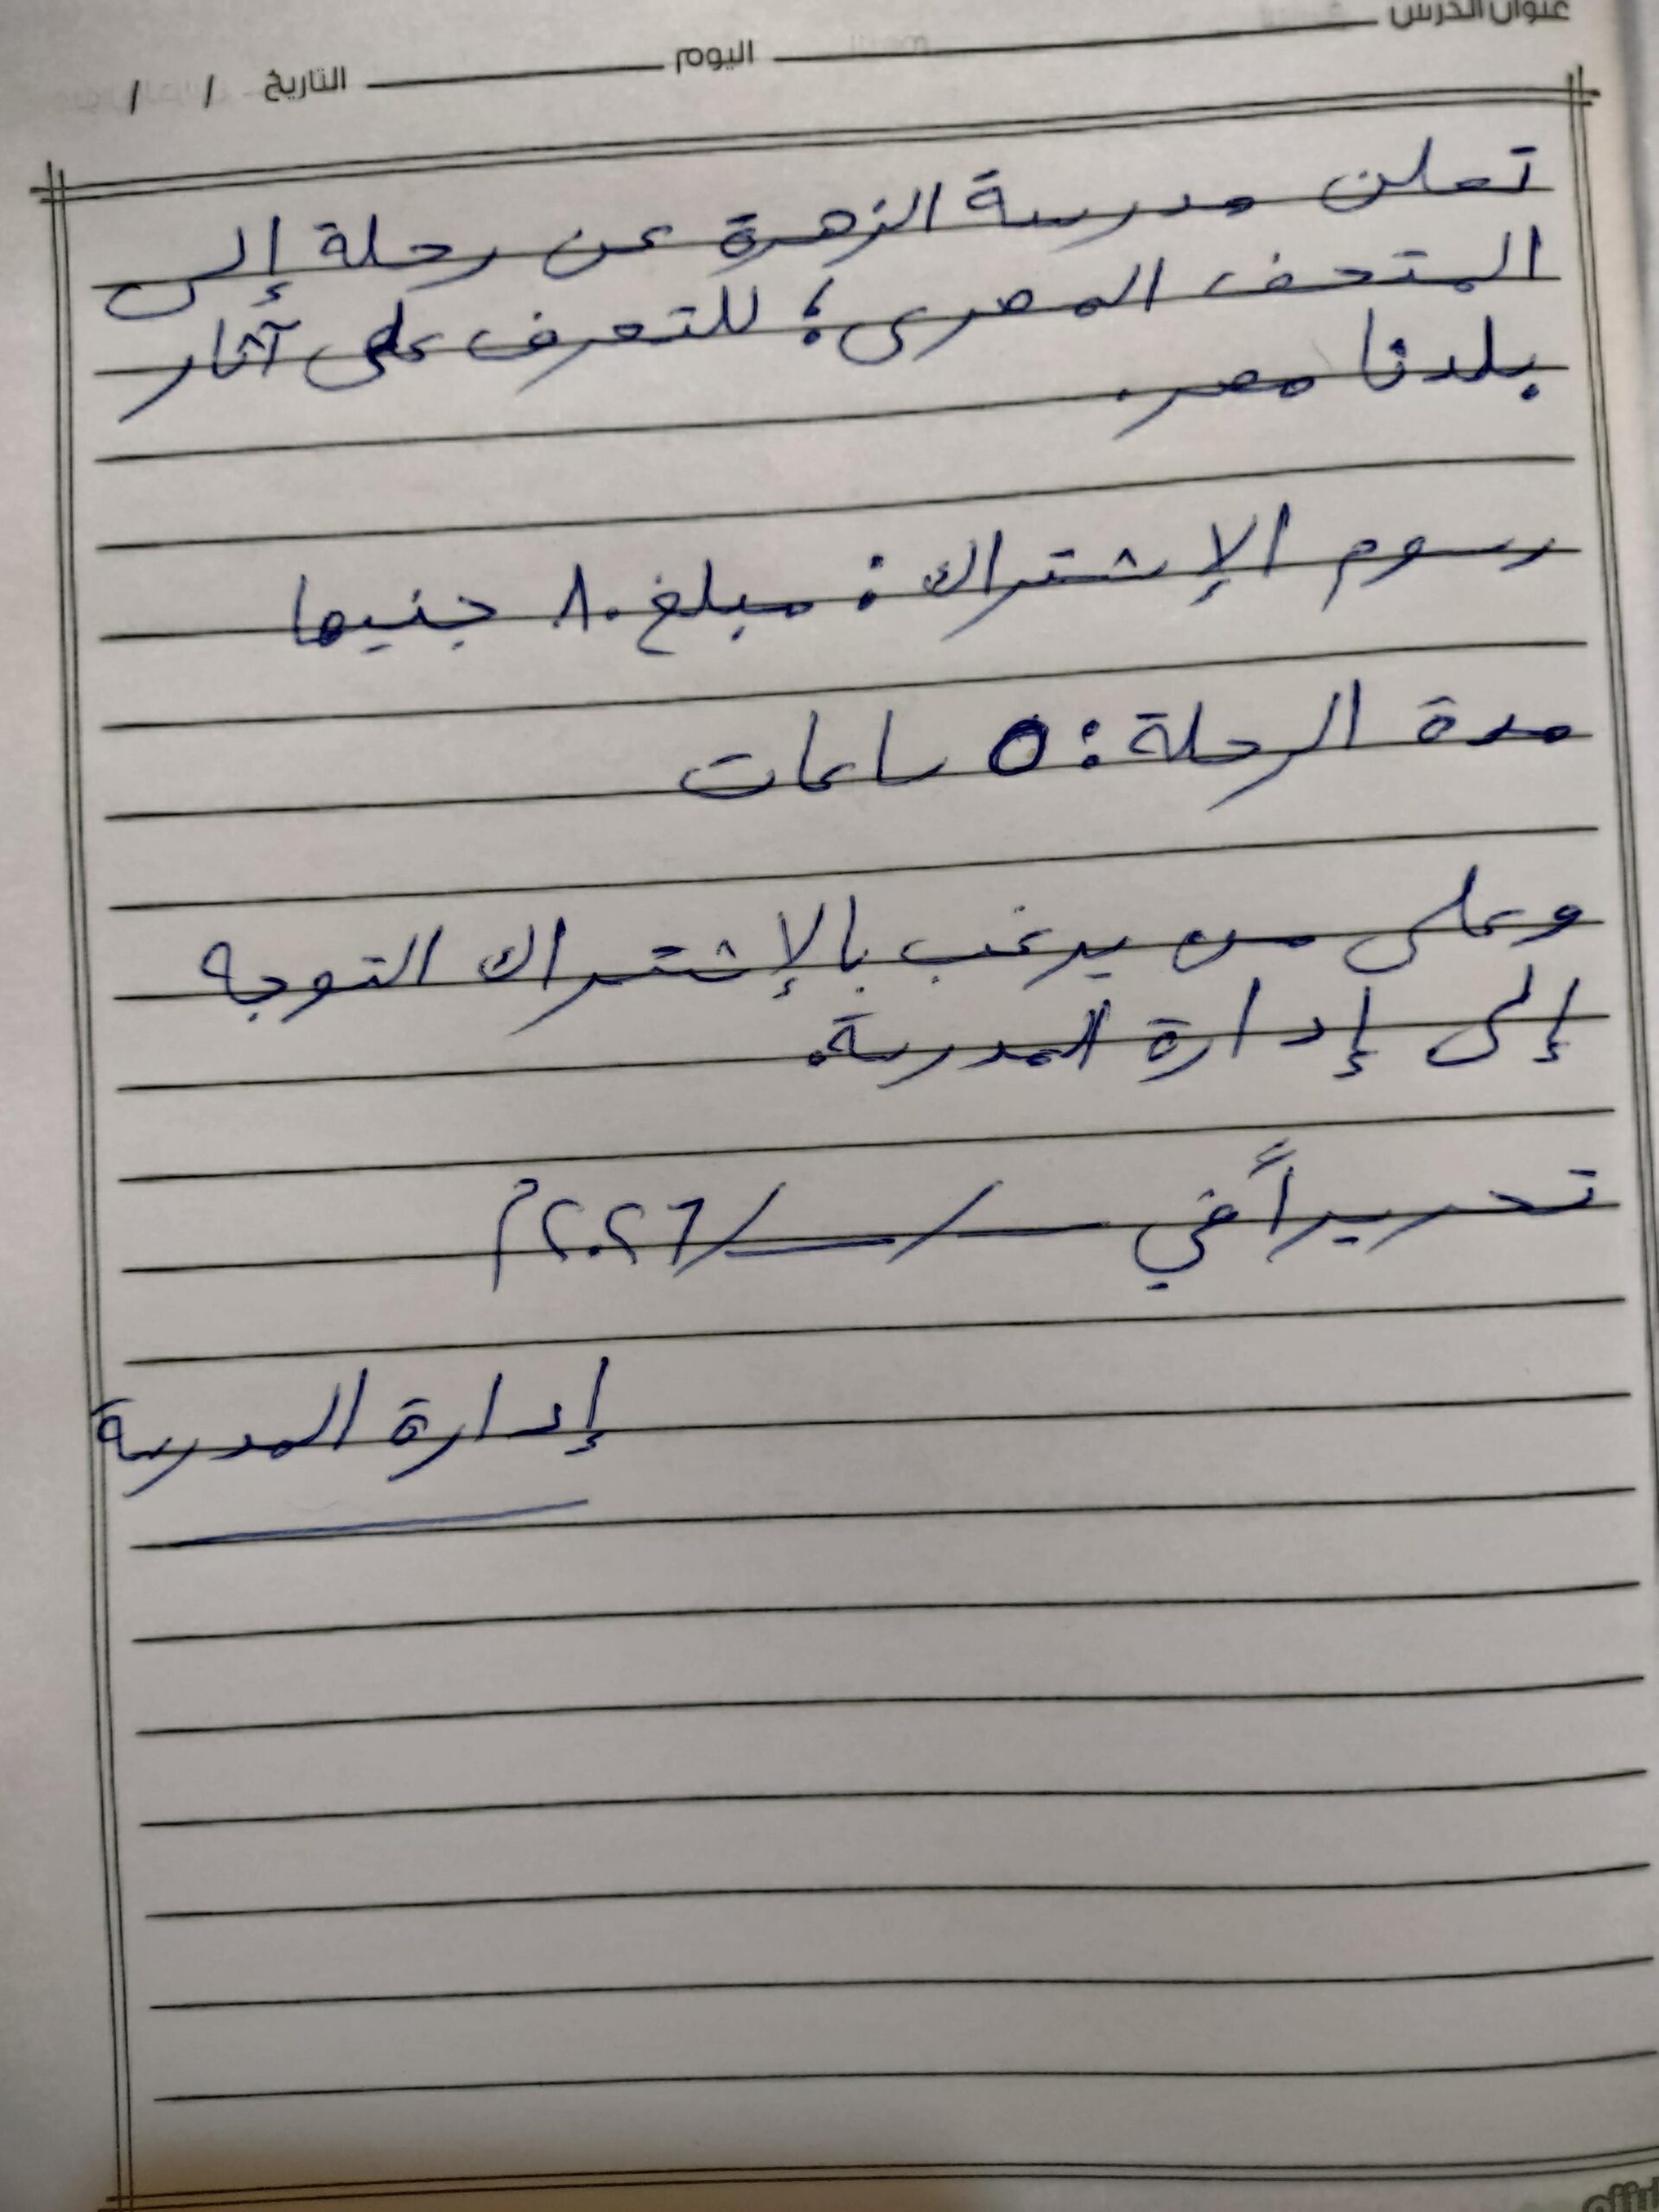 عنوان الدرس ________ اليوم ________ التاريخ / /
تعلن مدرسة الزهرة عن رحلة إلى
المتحف المصرى؛ للتعرف على آثار
بلدنا مصر.
رسوم الإشتراك: مبلغ ٨٠ جنيها
مدة الرحلة: ٥ ساعات
وعلى من يرغب بالإشتراك التوجه
إلى إدارة المدرسة.
تحريراً في __/__/٢٠٢٦م
إدارة المدرسة